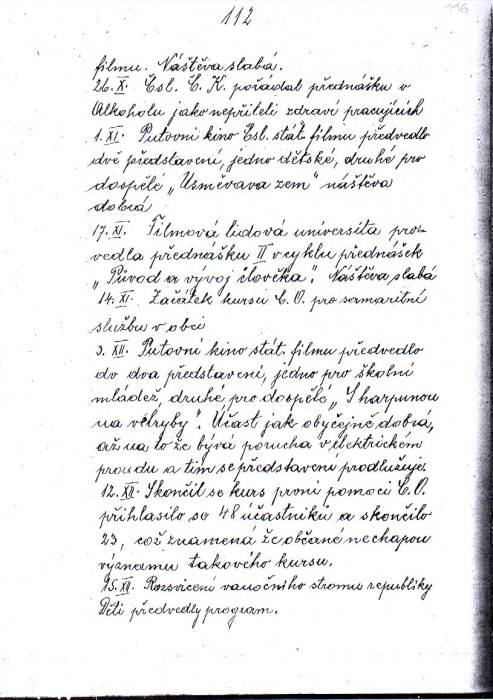 112
116
filmu. Náštěva slabá.
26. X. Čsl. Č. K. pořádal přednášku o
Alkoholu jako nepříteli zdraví pracujících
1. XI. Putovní kino Čsl. stát. filmu předvedlo
dvě představení, jedno dětské, druhé pro
dospělé „Usměvavá zem" náštěva
dobrá
17. XI. Filmová lidová universita pro-
vedla přednášku II v cyklu přednášek
„Původ a vývoj člověka". Náštěva slabá
14. XI. Začátek kursu C. O. pro samaritní
službu v obci
3. XII. Putovní kino stát. filmu předvedlo
dva představení, jedno pro školní
mládež, druhé pro dospělé „S harpunou
na velryby". Účast jak obyčejně dobrá,
až na to že bývá porucha v elektrickém
proudu a tím se představení prodlužuje.
12. XII. Skončil se kurs první pomoci C. O.
přihlásilo se 48 účastníků a skončilo
23, což znamená že občané nechápou
významu takového kursu.
15. XII. Rozsvícení vanočního stromu republiky
Děti předvedly program.